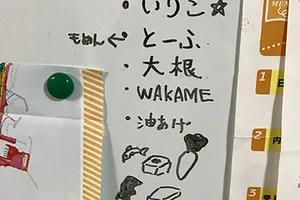 ・いりこ☆
もめんぐ ・とーふ
・大根
・WAKAME
・油あげ
MEN
1
2
3